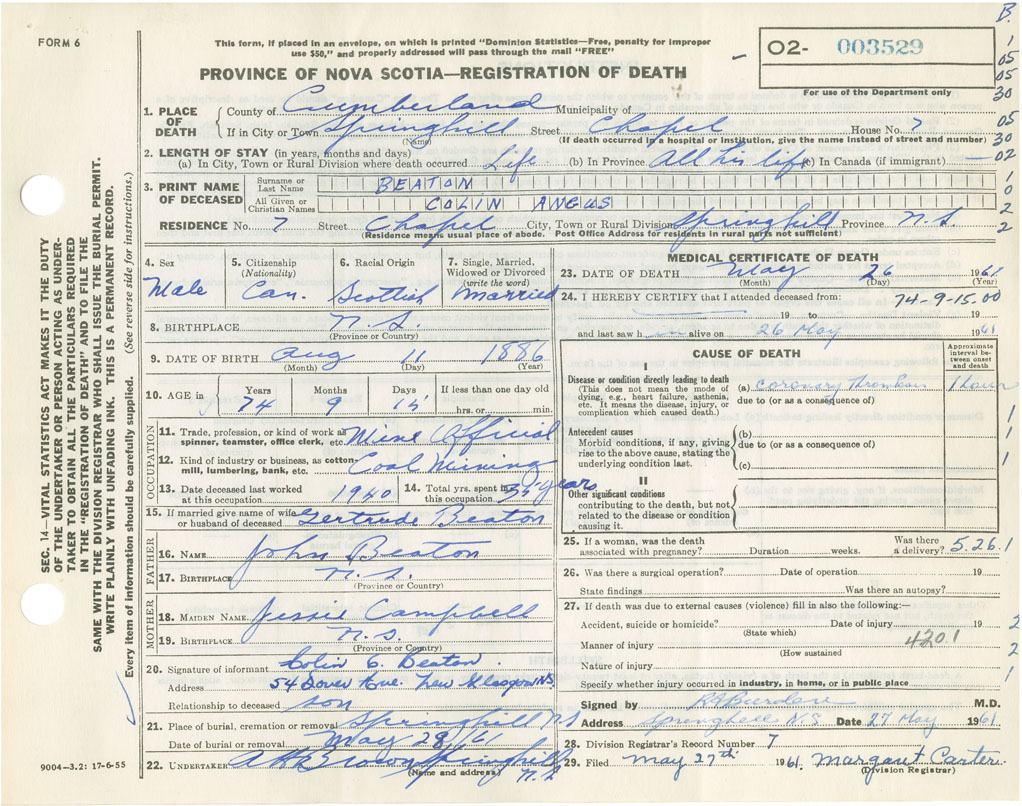 B.
FORM 6
This form, if placed in an envelope, on which is printed "Dominion Statistics—Free, penalty for improper
use $50," and properly addressed will pass through the mail "FREE"
PROVINCE OF NOVA SCOTIA—REGISTRATION OF DEATH
02- 003529
For use of the Department only
1
05
05
30
05
30
02
1
0
2
2
1. PLACE OF DEATH
County of Cumberland Municipality of
If in City or Town Springhill Street Chapel House No. 7
(Name) (If death occurred in a hospital or institution, give the name instead of street and number)
2. LENGTH OF STAY (in years, months and days)
(a) In City, Town or Rural Division where death occurred Life (b) In Province All his life (c) In Canada (if immigrant) —
3. PRINT NAME OF DECEASED
Surname or Last Name BEATON
All Given or Christian Names COLIN ANGUS
RESIDENCE No. 7 Street Chapel City, Town or Rural Division Springhill Province N.S.
(Residence means usual place of abode. Post Office Address for residents in rural parts not sufficient)
4. Sex
Male
5. Citizenship
(Nationality)
Can.
6. Racial Origin
Scottish
7. Single, Married,
Widowed or Divorced
(write the word)
Married
8. BIRTHPLACE N.S.
(Province or Country)
9. DATE OF BIRTH Aug 11 1886
(Month) (Day) (Year)
10. AGE in
Years Months Days If less than one day old
74 9 15 hrs. or min.
OCCUPATION
11. Trade, profession, or kind of work as
spinner, teamster, office clerk, etc. Mine Official
12. Kind of industry or business, as cotton-
mill, lumbering, bank, etc. Coal Mining
13. Date deceased last worked
at this occupation. 1940
14. Total yrs. spent in
this occupation 35 years
15. If married give name of wife
or husband of deceased Gertrude Beaton
FATHER
16. NAME John Beaton
17. BIRTHPLACE N.S.
(Province or Country)
MOTHER
18. MAIDEN NAME Jessie Campbell
19. BIRTHPLACE N.S.
(Province or Country)
20. Signature of informant Colin G. Beaton
Address 54 Dover Ave. New Glasgow N.S.
Relationship to deceased son
21. Place of burial, cremation or removal Springhill N.S.
Date of burial or removal May 28/61
22. UNDERTAKER Brown Springhill
(Name and address) N.S.
MEDICAL CERTIFICATE OF DEATH
23. DATE OF DEATH May 26 1961
(Month) (Day) (Year)
24. I HEREBY CERTIFY that I attended deceased from: 74-9-15.00
19 to 19
and last saw him alive on 26 May 1961
CAUSE OF DEATH
Approximate
interval be-
tween onset
and death
I
Disease or condition directly leading to death
(This does not mean the mode of
dying, e.g., heart failure, asthenia,
etc. It means the disease, injury, or
complication which caused death.)
(a) coronary thrombosis 1 hour
due to (or as a consequence of)
Antecedent causes
Morbid conditions, if any, giving
rise to the above cause, stating the
underlying condition last.
(b)
due to (or as a consequence of)
(c)
II
Other significant conditions
contributing to the death, but not
related to the disease or condition
causing it.
1
1
1
25. If a woman, was the death
associated with pregnancy? Duration weeks. Was there
a delivery? 5.26.1
26. Was there a surgical operation? Date of operation 19
State findings Was there an autopsy?
27. If death was due to external causes (violence) fill in also the following:—
Accident, suicide or homicide? Date of injury 19
(State which)
Manner of injury 4201
(How sustained
Nature of injury
Specify whether injury occurred in industry, in home, or in public place
2
2
1
Signed by M.D.
Address Springhill N.S Date 27 May 1961.
28. Division Registrar's Record Number 7
29. Filed May 27th 1961. Margaret Carter
(Division Registrar)
SEC. 14—VITAL STATISTICS ACT MAKES IT THE DUTY
OF THE UNDERTAKER OR PERSON ACTING AS UNDER-
TAKER TO OBTAIN ALL THE PARTICULARS REQUIRED
IN THE "REGISTRATION OF DEATH" AND TO FILE THE
SAME WITH THE DIVISION REGISTRAR WHO SHALL ISSUE THE BURIAL PERMIT.
WRITE PLAINLY WITH UNFADING INK. THIS IS A PERMANENT RECORD.
Every item of information should be carefully supplied. (See reverse side for instructions.)
9004—3.2: 17-6-55